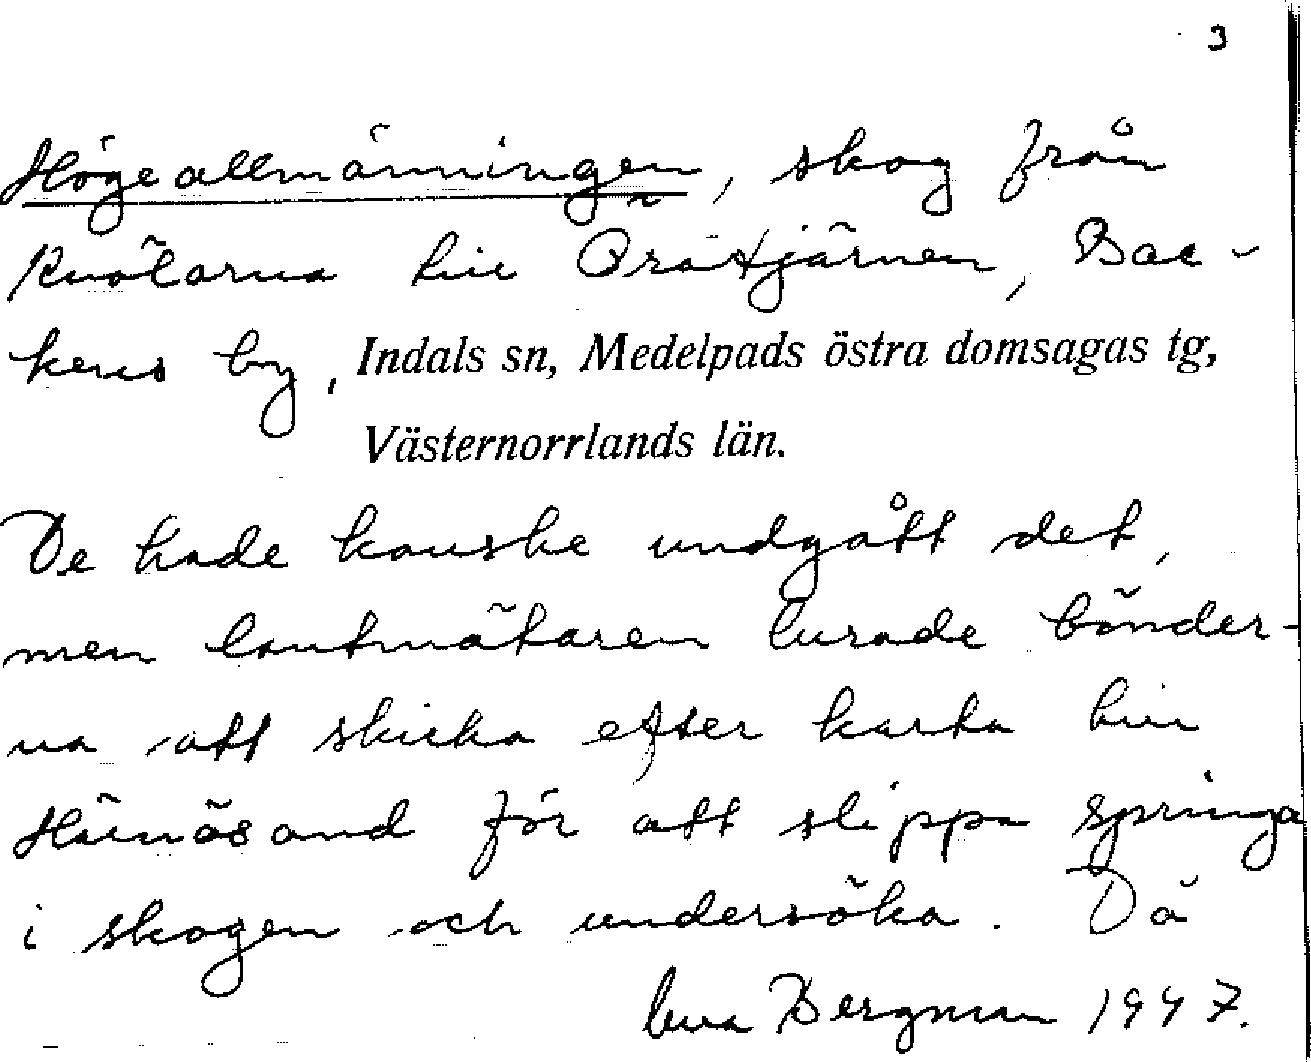 3
Högeallmänningen, skog från
Knölarna till Prästjärnen, Bac-
kens by, Indals sn, Medelpads östra domsagas tg,
Västernorrlands län.
De hade kanske undgått det,
men lantmätaren lurade bönder-
na att skicka efter karta hin
Härnösand för att slippa springa
i skogen och undersöka. Då
Bergman 1947.